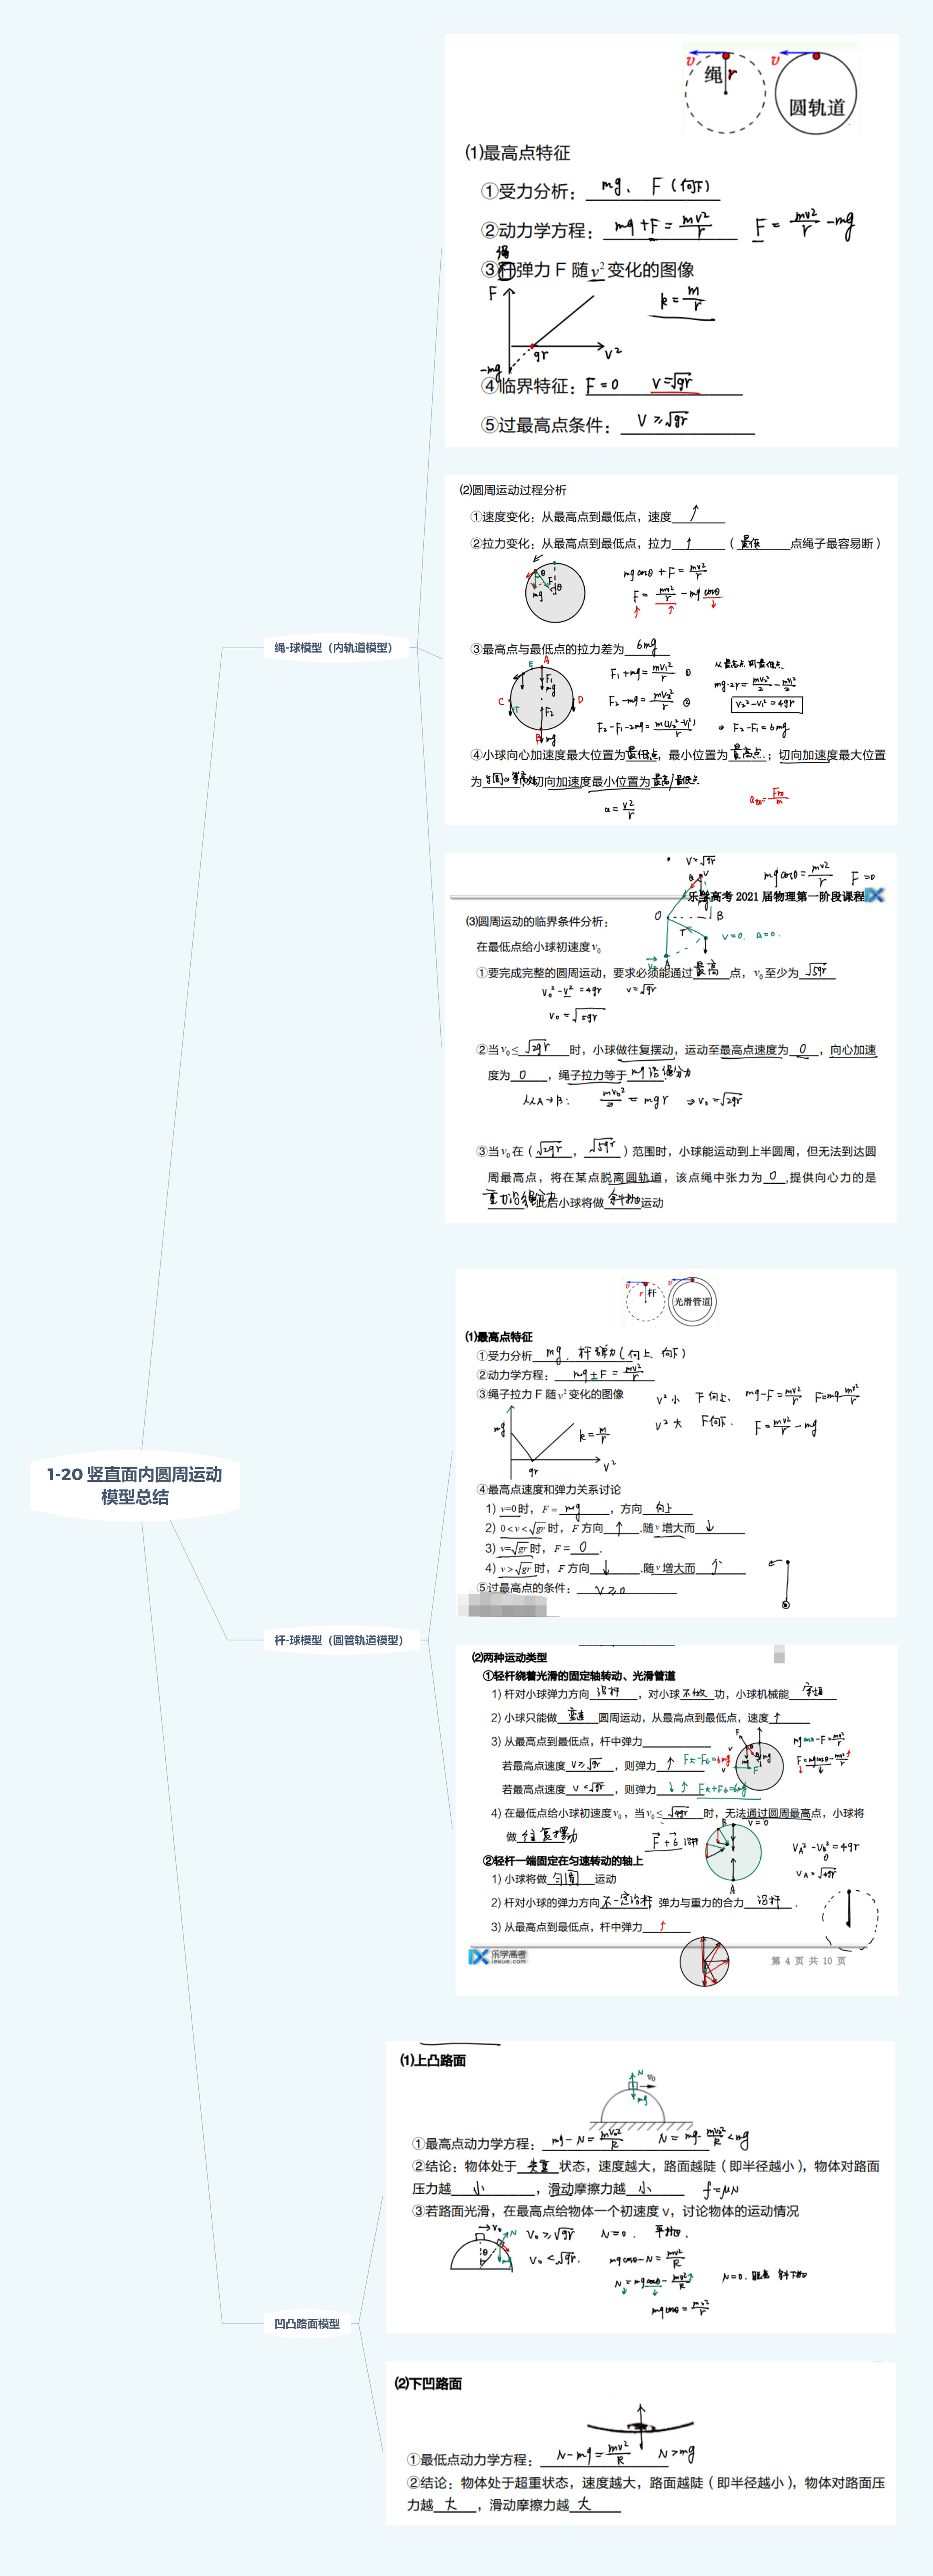 1-20 竖直面内圆周运动
模型总结
绳-球模型（内轨道模型）
绳 r
υ
υ
圆轨道
⑴最高点特征
①受力分析： mg、 F（向下）
②动力学方程： mg+F=mv²/r F=mv²/r-mg
绳
③杆弹力 F 随 v² 变化的图像
F
k=m/r
gr
v²
-mg
④临界特征：F=0 V=√gr
⑤过最高点条件： V≥√gr
⑵圆周运动过程分析
①速度变化：从最高点到最低点，速度 ↑
②拉力变化：从最高点到最低点，拉力 ↑ （ 最低 点绳子最容易断）
mgcosθ+F=mv²/r
F=mv²/r-mgcosθ
③最高点与最低点的拉力差为 6mg
F₁+mg=mv₁²/r ①
F₂-mg=mv₂²/r ②
F₂-F₁-2mg=m(v₂²-v₁²)/r
从最高点到最低点.
mg·2r=mv₂²/2-mv₁²/2
v₂²-v₁²=4gr
F₂-F₁=6mg
④小球向心加速度最大位置为最低点，最小位置为最高点；切向加速度最大位置
为与圆心等高处，切向加速度最小位置为最高/最低点
a=v²/r
V=√gr
mgcosθ=mv²/r F=0
乐学高考 2021 届物理第一阶段课程
⑶圆周运动的临界条件分析：
V=0. a=0.
在最低点给小球初速度 v₀
①要完成完整的圆周运动，要求必须能通过最高点，v₀ 至少为 √5gr
V₀²-V²=4gr V=√gr
V₀=√5gr
②当 v₀≤ √2gr 时，小球做往复摆动，运动至最高点速度为 0 ，向心加速
度为 0 ，绳子拉力等于 mg沿绳分力
从A→B： mv₀²/2=mgr ⇒V₀=√2gr
③当 v₀ 在（ √2gr ， √5gr ）范围时，小球能运动到上半圆周，但无法到达圆
周最高点，将在某点脱离圆轨道，该点绳中张力为 0 ,提供向心力的是
重力沿绳分力，此后小球将做 斜抛 运动
杆-球模型（圆管轨道模型）
杆
光滑管道
⑴最高点特征
①受力分析 mg、杆弹力（向上、向下）
②动力学方程： mg±F=mv²/r
③绳子拉力 F 随 v² 变化的图像
v²小 F向上、 mg-F=mv²/r F=mg-mv²/r
v²大 F向下. F=mv²/r-mg
mg
k=m/r
gr
v²
④最高点速度和弹力关系讨论
1) v=0 时，F= mg ，方向 向上
2) 0<v<√gr 时，F 方向 ↑ .随 v 增大而 ↓
3) v=√gr 时，F= 0 .
4) v>√gr 时，F 方向 ↓ .随 v 增大而 ↑
⑤过最高点的条件： V≥0
⑵两种运动类型
①轻杆绕着光滑的固定轴转动、光滑管道
1) 杆对小球弹力方向 沿杆 ，对小球 不做 功，小球机械能 守恒
2) 小球只能做 变速 圆周运动，从最高点到最低点，速度 ↑
3) 从最高点到最低点，杆中弹力
mgcosθ-F=mv²/r
F=mgcosθ-mv²/r
若最高点速度 V≥√gr ，则弹力 ↑ F大-F小=6mg
若最高点速度 V<√gr ，则弹力 ↓ ↑ F大+F小=6mg
4) 在最低点给小球初速度 v₀，当 v₀≤ √4gr 时，无法通过圆周最高点，小球将
做 往复摆动
V=0
V_A²-V_B²=4gr
V_A=√4gr
②轻杆一端固定在匀速转动的轴上
1) 小球将做 匀圆 运动
2) 杆对小球的弹力方向 不一定沿杆 弹力与重力的合力 沿杆 .
3) 从最高点到最低点，杆中弹力 ↑
乐学高考
lexue.com
第 4 页 共 10 页
凹凸路面模型
⑴上凸路面
N v₀
mg
①最高点动力学方程： mg-N=mv₀²/R N=mg-mv₀²/R<mg
②结论：物体处于 失重 状态，速度越大，路面越陡（即半径越小），物体对路面
压力越 小 ，滑动摩擦力越 小 f=μN
③若路面光滑，在最高点给物体一个初速度 v，讨论物体的运动情况
V₀≥√gr N=0. 平抛.
V₀<√gr. mgcosθ-N=mv²/R
N=mgcosθ-mv²/R N=0. 脱离 斜下抛
mgcosθ=mv²/r
⑵下凹路面
①最低点动力学方程： N-mg=mv²/R N>mg
②结论：物体处于超重状态，速度越大，路面越陡（即半径越小），物体对路面压
力越 大 ，滑动摩擦力越 大